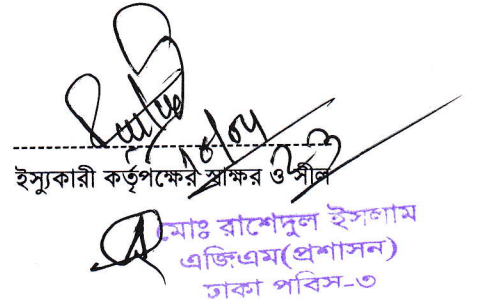 ইস্যুকারী কর্তৃপক্ষের স্বাক্ষর ও সীল
মোঃ রাশেদুল ইসলাম
এজিএম(প্রশাসন)
ঢাকা পবিস-৩